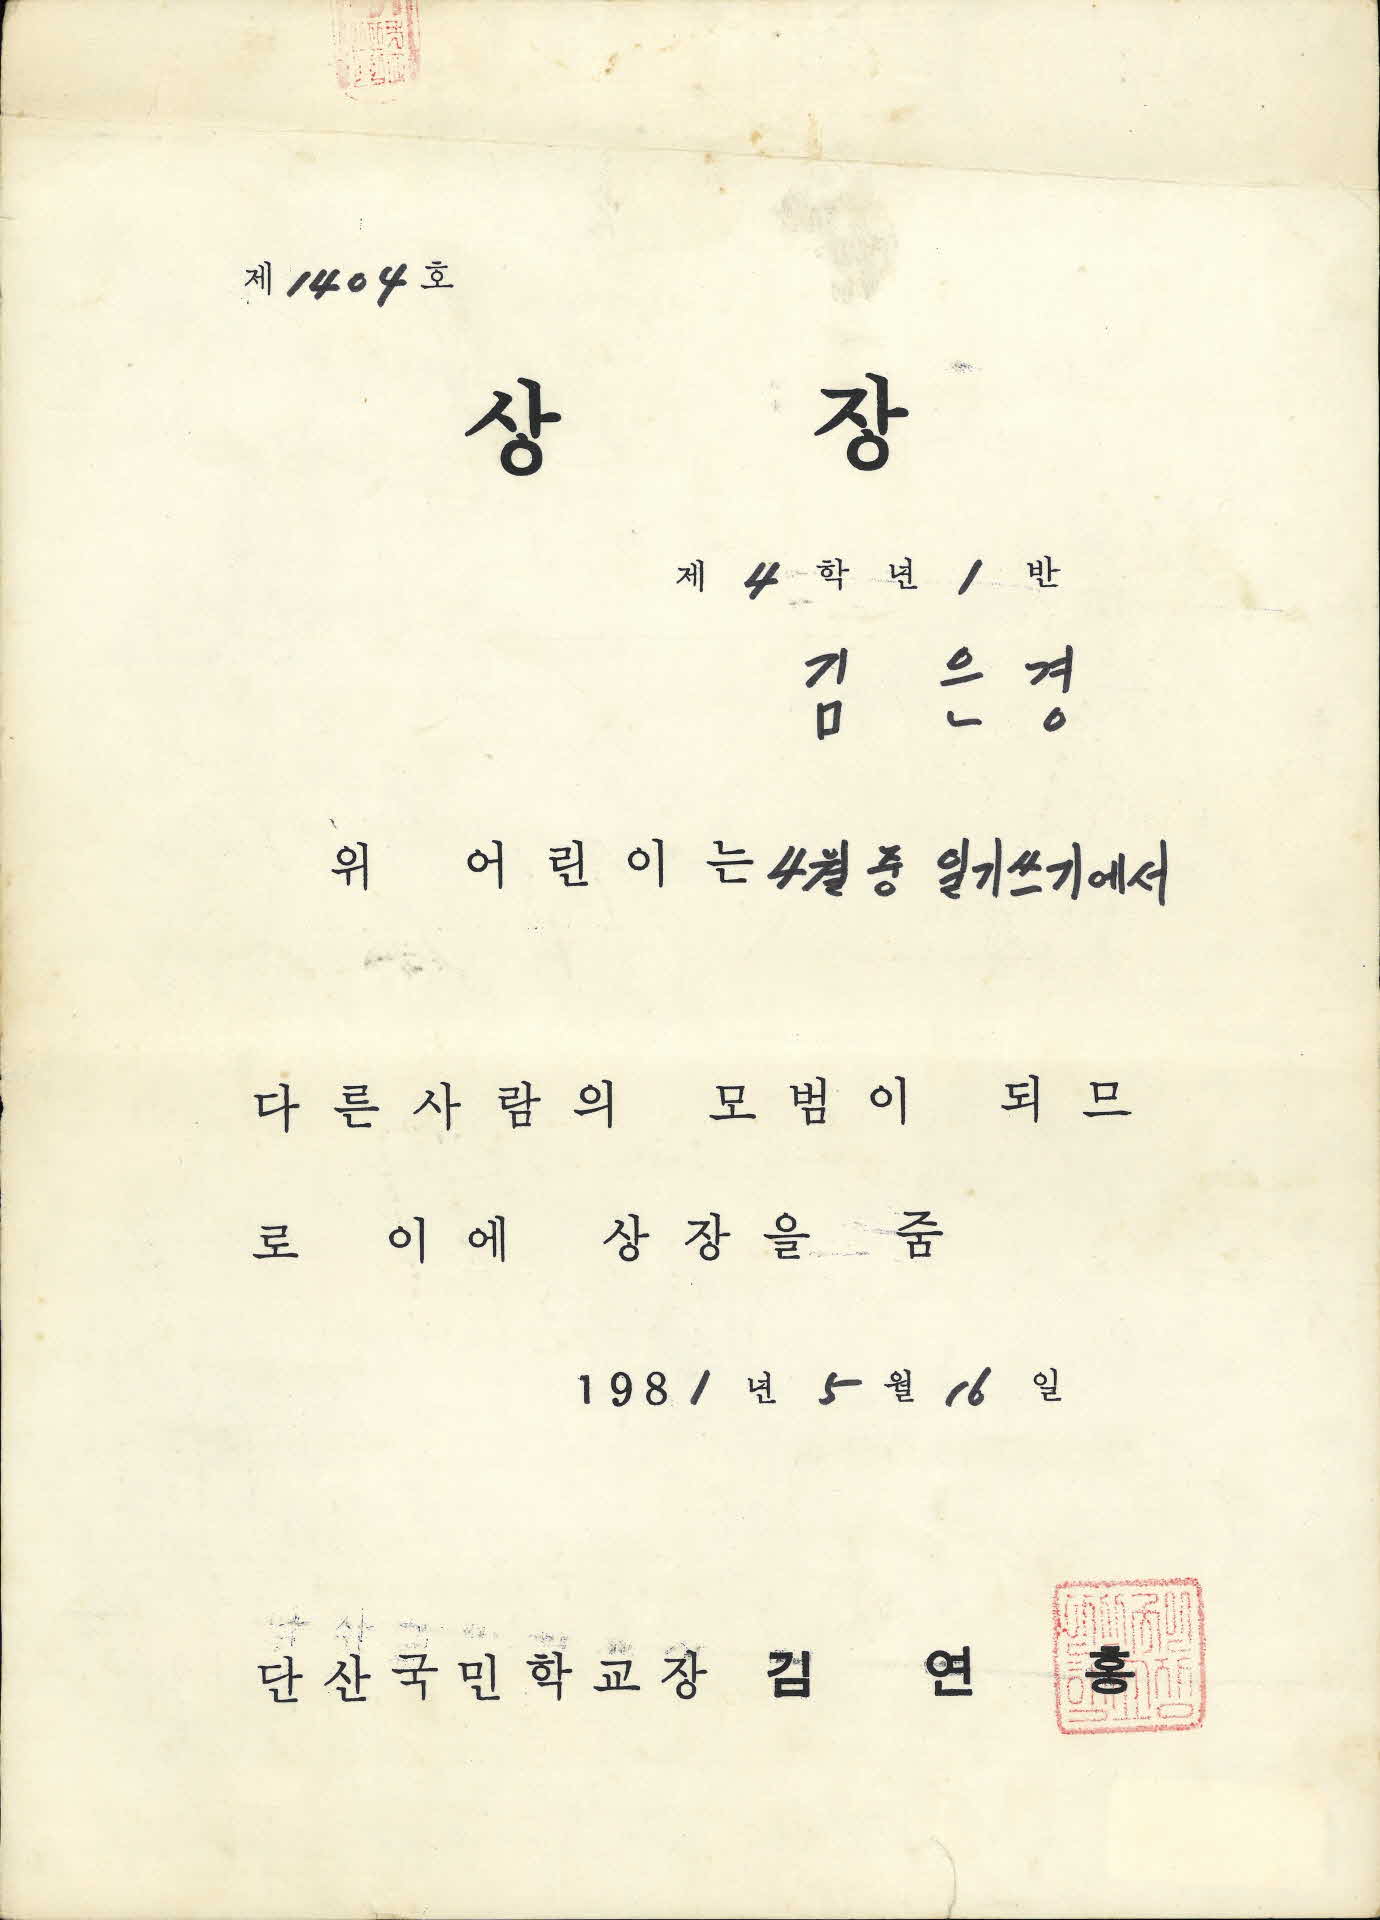 제 1404 호
상 장
제 4 학년 1 반
김 은경
위 어린이는 4월중 일기쓰기에서
다른사람의 모범이 되므
로 이에 상장을 줌
1981년 5월 16일
단산국민학교장 김 연 홍